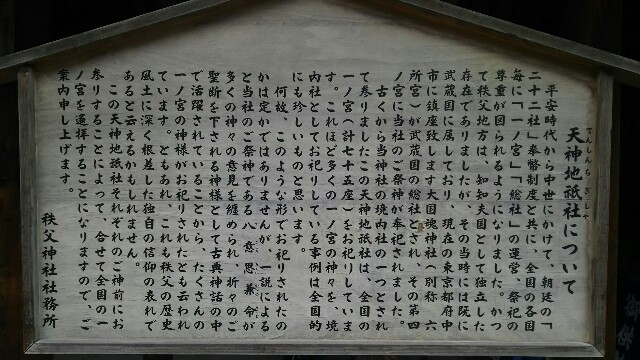 天神地祇社について
てんじんちぎしゃ
平安時代から中世にかけて、朝廷の「
二十二社」奉幣制度と共に、全国の各国
毎に「一ノ宮」「総社」の運営、祭祀の
尊重が図られるようになりました。かつ
て秩父地方は、知知夫国として独立した
存在でありましたが、その当時には既に
武蔵国に属しており、現在の東京都府中
市に鎮座致します大国魂神社（別称　六
所宮）が武蔵国の総社とされ、その第四
ノ宮に当社のご祭神が奉祀されました。
古くから当神社の境内社の一つとされ
て参りましたこの天神地祇社は、全国の
一ノ宮（計七十五座）をお祀りしていま
す。これほど多くの一ノ宮の神々を、境
内社としてお祀りしている事例は全国的
にも珍しいものと思います。
何故、このような形でお祀りされたの
かは定かではありませんが、一説による
と当社のご祭神である八意思兼命が
多くの神々の意見を纏められ、折々のご
聖断を下される神様として古典神話の中
で活躍されていることから、たくさんの
一ノ宮の神様がお祀りされたとも云われ
ています。ともあれ、これも秩父の歴史
風土に深く根差した独自の信仰の表れで
あると云えるかもしれません。
この天神地祇社それぞれのご神前にお
参りすることによって、合せて全国の一
ノ宮を遥拝することになりますので、ご
案内申し上げます。
秩父神社社務所